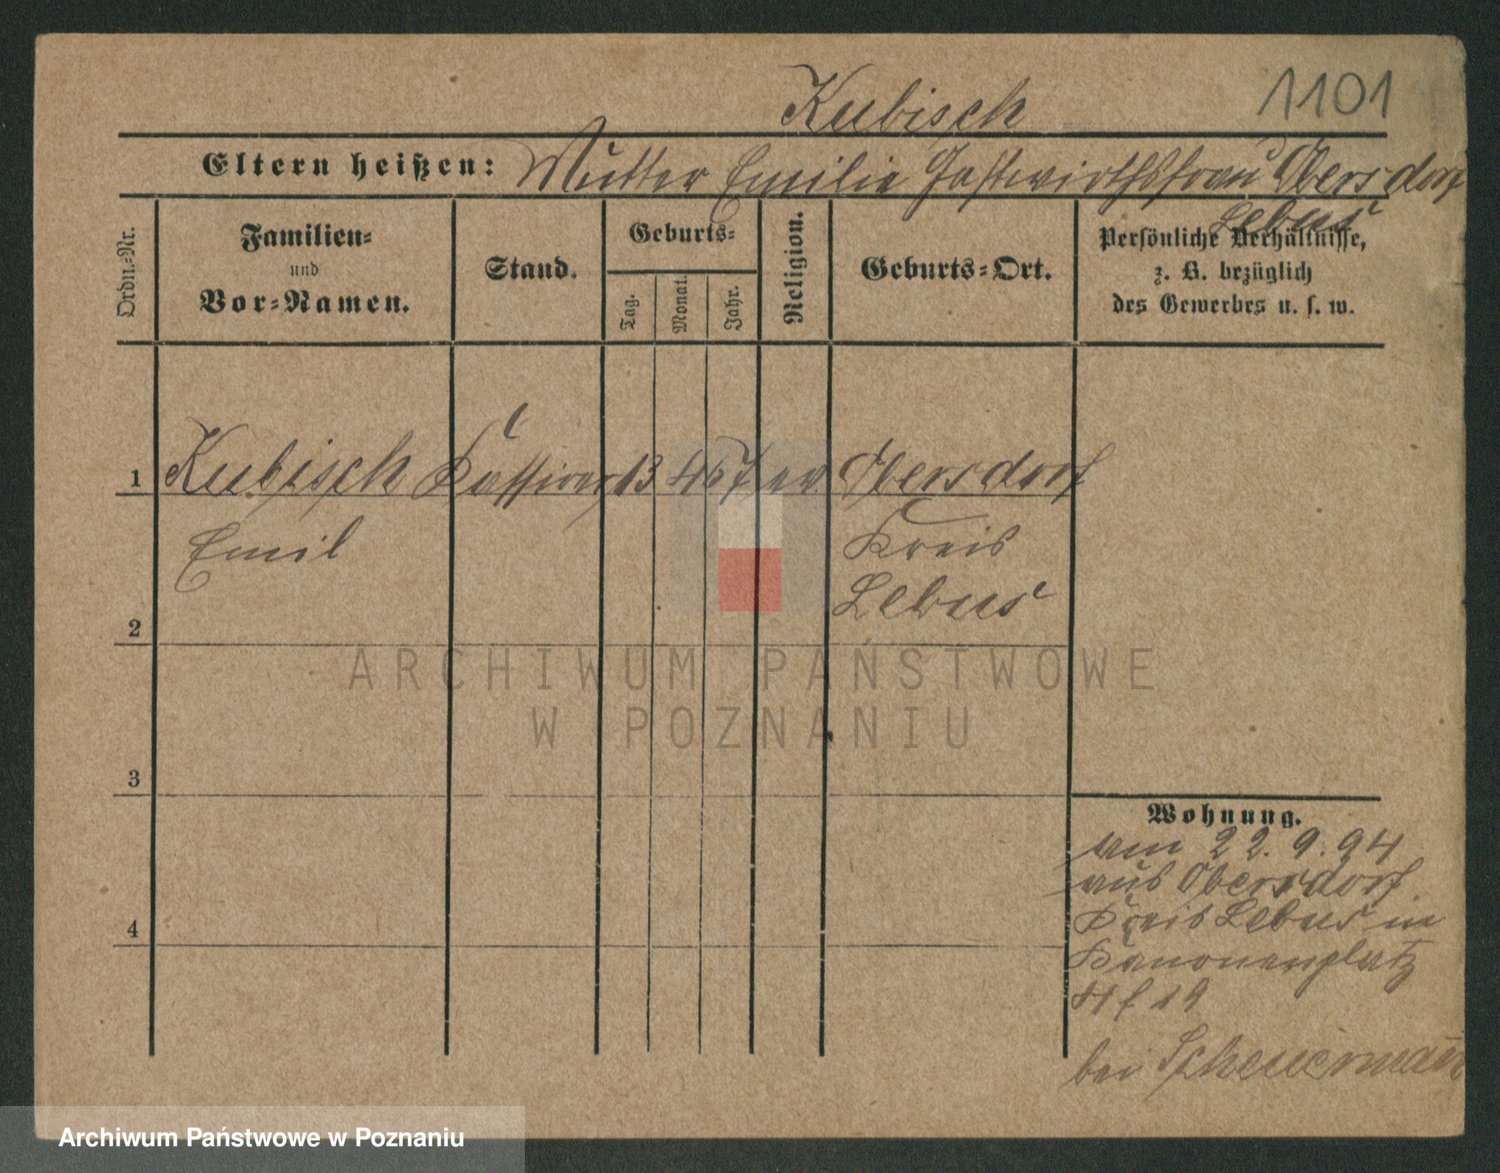 Kubisch 1101
Eltern heißen: Mutter Emilie Gastwirthsfrau Obersdorf
Lebus
Ordn.-Nr.
Familien-
und
Vor-Namen.
Stand.
Geburts-
Tag.
Monat.
Jahr.
Religion.
Geburts-Ort.
Persönliche Verhältnisse,
z. B. bezüglich
des Gewerbes u. s. w.
1 Kubisch Kassirer 13 4 67 ev. Obersdorf
Emil Kreis
Lebus
2
3
4
Wohnung.
am 22.9.94
aus Obersdorf
Kreis Lebus in
Kanonenplatz
bei Scheuermann
ARCHIWUM PAŃSTWOWE
W POZNANIU
Archiwum Państwowe w Poznaniu